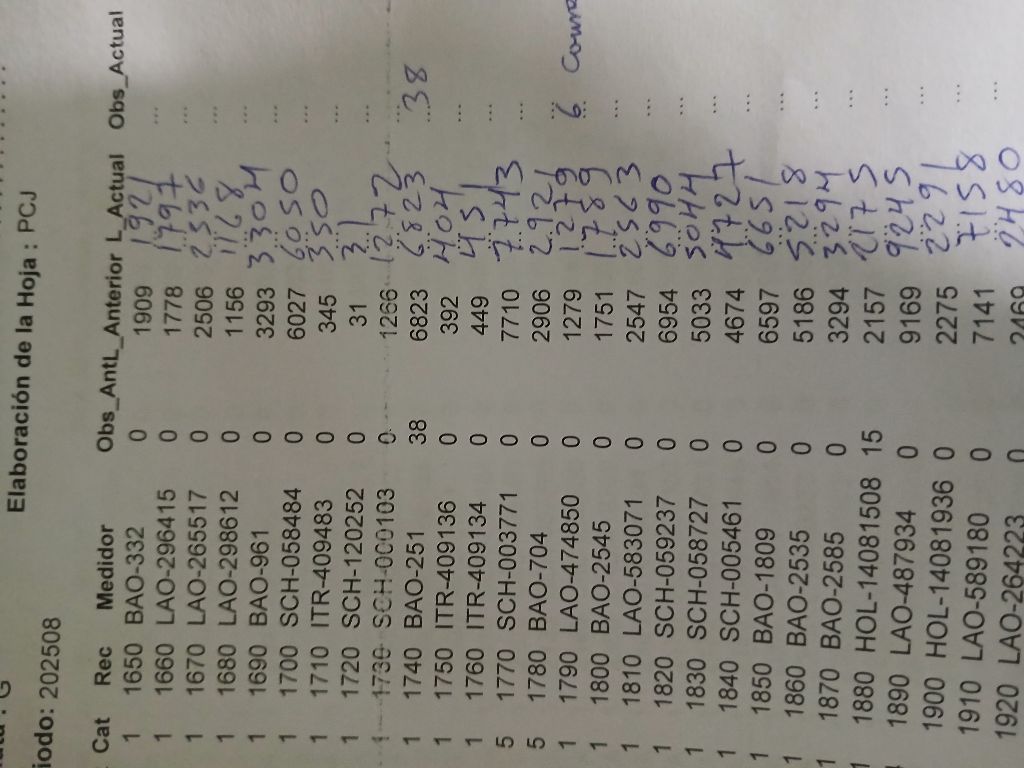 Elaboración de la Hoja : PCJ
iodo: 202508
Cat Rec Medidor Obs_AntL_Anterior L_Actual Obs_Actual
1 1650 BAO-332 0 1909 1921
1 1660 LAO-296415 0 1778 1797 ...
1 1670 LAO-265517 0 2506 2536 ...
1 1680 LAO-298612 0 1156 1168 ...
1 1690 BAO-961 0 3293 3304 ...
1 1700 SCH-058484 0 6027 6050 ...
1 1710 ITR-409483 0 345 350 ...
1 1720 SCH-120252 0 31 31 ...
1 1730 SCH-000103 0 1266 1272 ...
1 1740 BAO-251 38 6823 6823 38
1 1750 ITR-409136 0 392 404 ...
1 1760 ITR-409134 0 449 451 ...
5 1770 SCH-003771 0 7710 7743 ...
5 1780 BAO-704 0 2906 2921 ...
1 1790 LAO-474850 0 1279 1279 6
1 1800 BAO-2545 0 1751 1789 ...
1 1810 LAO-583071 0 2547 2563 ...
1 1820 SCH-059237 0 6954 6990 ...
1 1830 SCH-058727 0 5033 5044 ...
1 1840 SCH-005461 0 4674 4727 ...
1 1850 BAO-1809 0 6597 6651 ...
1 1860 BAO-2535 0 5186 5218 ...
1 1870 BAO-2585 0 3294 3294 ...
1 1880 HOL-14081508 15 2157 2175 ...
1890 LAO-487934 0 9169 9245 ...
1900 HOL-14081936 0 2275 2291 ...
1910 LAO-589180 0 7141 7158 ...
1920 LAO-264223 0 2469 2480 ...